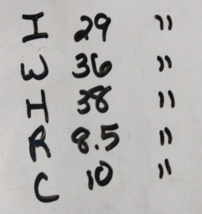 I 29 "
W 36 "
H 38 "
R 8.5 "
C 10 "